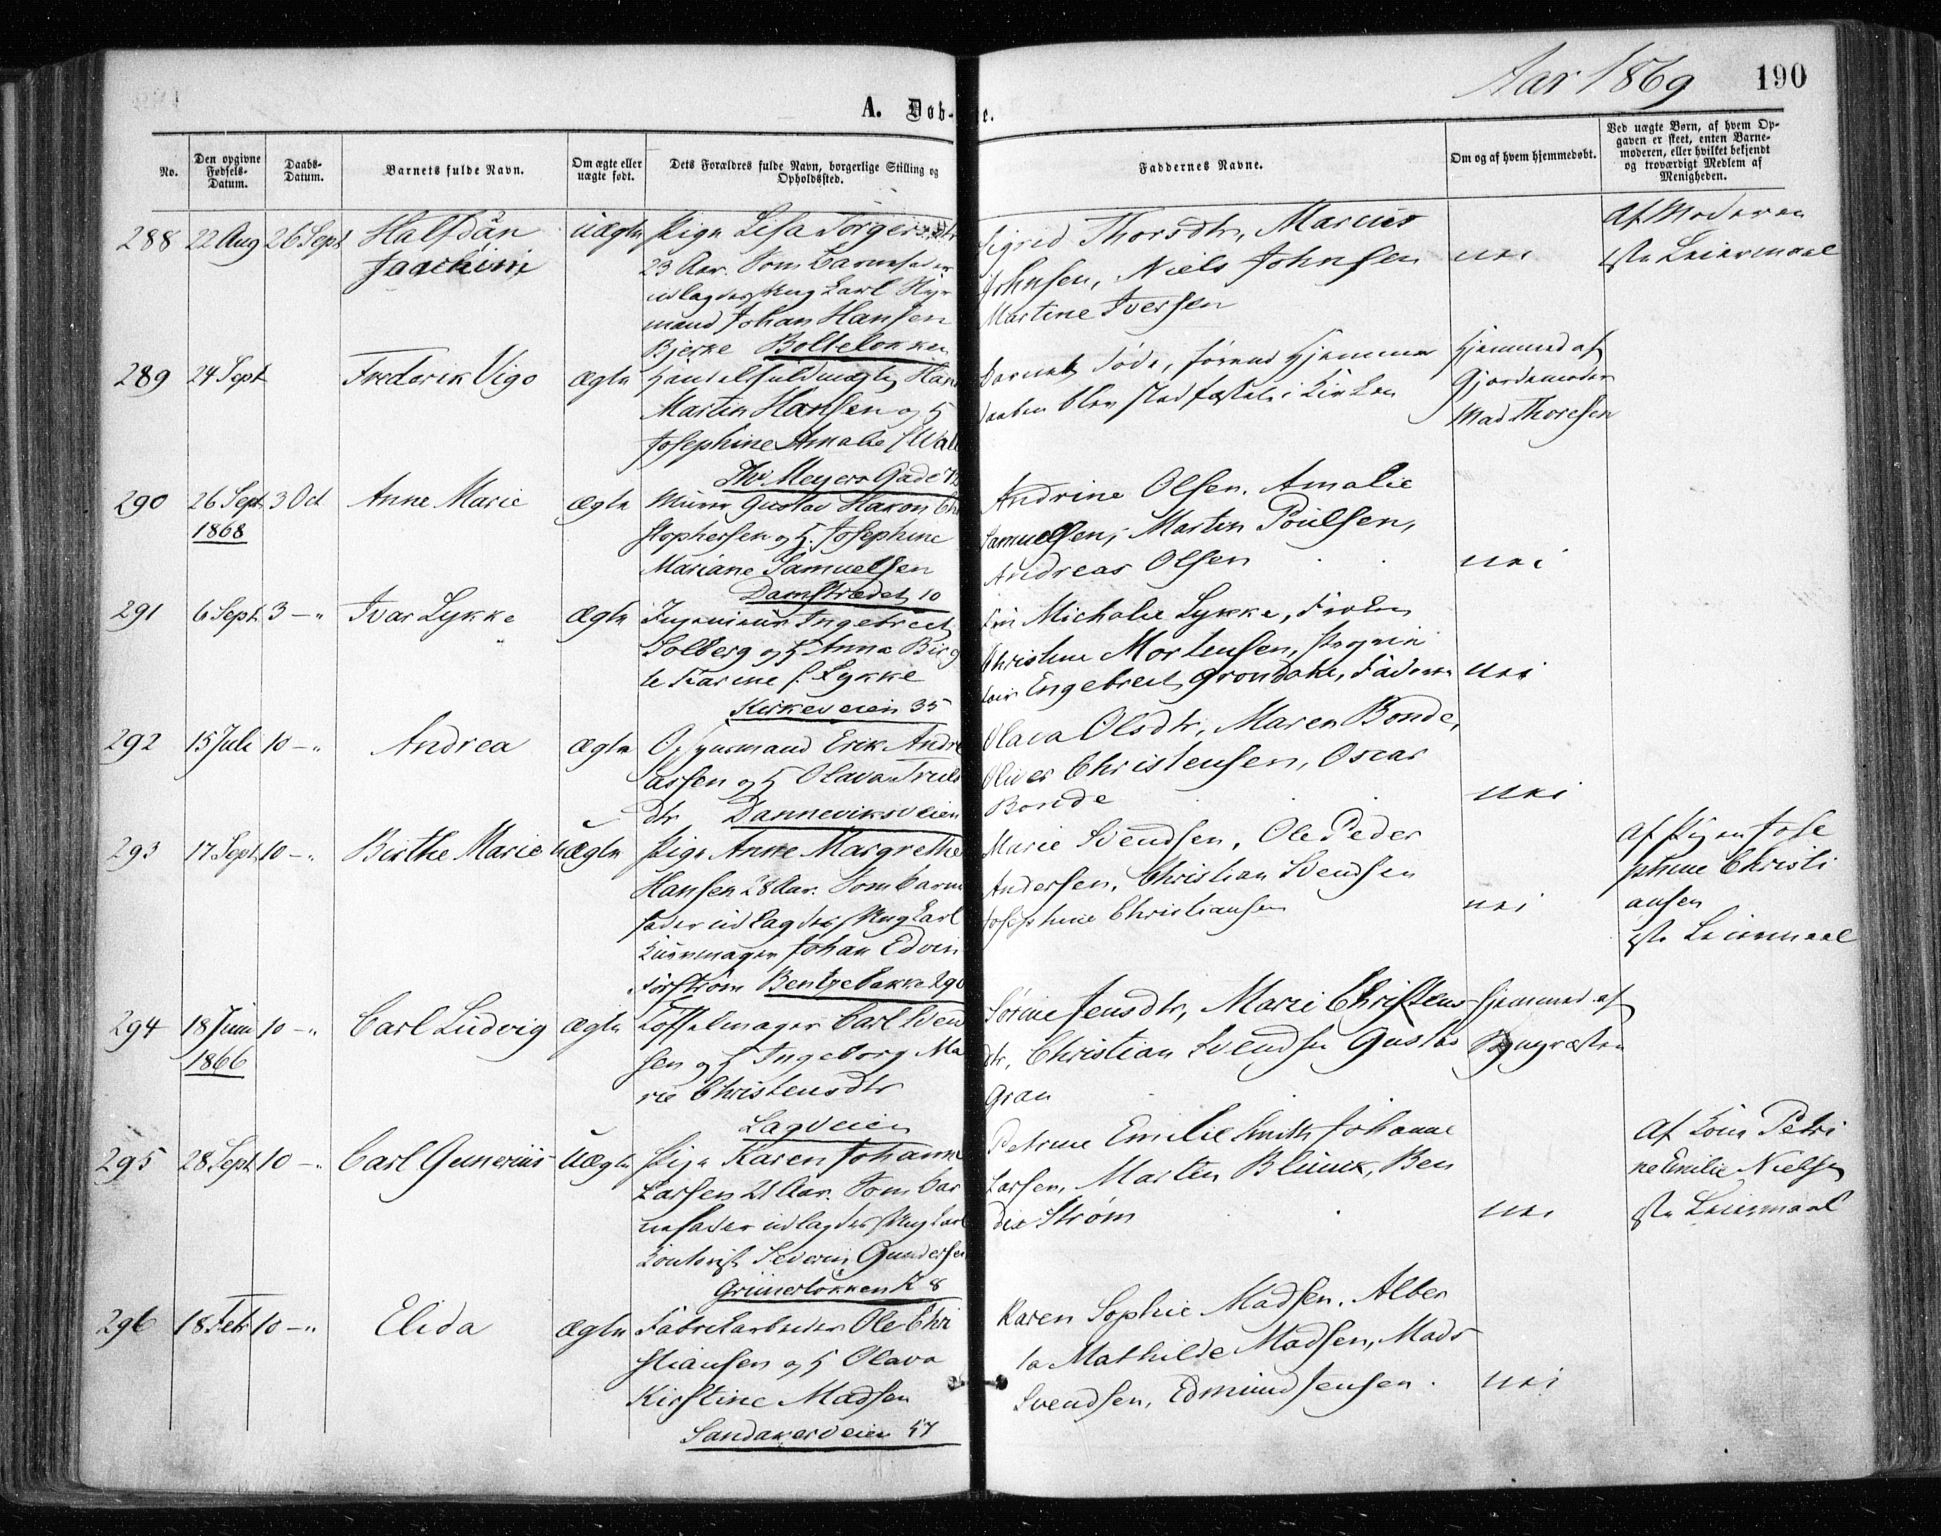 Aar 1869 190
A. Døb- e.
No.
Den opgivne
Fødsels-
Datum.
Daabs-
Datum.
Barnets fulde Navn.
Om ægte eller
uægte født.
Dets Forældres fulde Navn, borgerlige Stilling og
Opholdssted.
Faddernes Navne.
Om og af hvem hjemmedøbt.
Ved uægte Børn, af hvem Op-
gaven er skeet, enten Barne-
moderen, eller hvilket bekjendt
og troværdigt Medlem af
Menigheden.
288 22 Aug 26 Sept Halfdan
Joachim
uægte
Pige Lisa Torgersdtr
23 Aar. Som Barnefader
udlagdes Ung Carl Hyr
mand Johan Hansen
Bjerke Bolteløkken
Sigrid Thorsdtr, Marcus
Johnsen, Niels Johnsen
Martine Iversen
nei
Af Moderen
1ste Leiermaal
289 24 Sept Frederik Vigo ægte
Handelsfuldmægtig Hans
Martin Hansen og H
Josephine Amalie f Wall
Thv Meyers Gade
Barnet døde, førend Hjemme
daaben blev stadfæstet i Kirken
Hjemmed af
Gjordemoder
Mad Thoresen
290 26 Sept 1868 3 Oct Anne Marie ægte
Murer Gustav Hakon Chri
stophersen og H. Josephine
Mariane Samuelsen
Damstrædet 10
Andrine Olsen, Amalie
Samuelsen, Martin Poulsen,
Andreas Olsen
nei
291 6 Sept 3 - " Ivar Lykke ægte
Ingenieur Ingebret
Solberg og H Anna Birg
te Karine f. Lykke
Kirkeveien 35
Fru Michalie Lykke, Frøken
Christine Mortensen,
Engebret Grondahl, Faderen
nei
292 15 Juli 10 - " Andrea ægte
Opsynsmand Erik Andre
assen og H Olava Truls
dtr Danneviksveien
Olava Olsdtr, Maren Bonde,
Oliver Christensen, Oscar
Bonde
nei
293 17 Sept 10 - " Birthe Marie uægte
Pige Anne Margrethe
Hansen 28 Aar. Som Barne
fader udlagdes Ung Carl
Buntmager Johan Edvin
Forstrøm Bentzebakke 290
Marie Svendsen, Ole Peder
Andersen, Christian Svendsen
Josephine Christiansen
nei
Af Pigen Jose
phine Christi
ansen
1ste Leiermaal
294 18 Juni 1866 10 - " Carl Ludvig ægte
Toffelmager Carl Svend
sen og H Ingeborg Ma
rie Christensdtr
Lagveien
Sørine Jensdtr, Mari Christens
dtr, Christian Svendsen Gustav
Gran
Hjemmed. af
295 28 Sept 10 - " Carl Gunerius Uægte
Pige Karen Johanne
Larsen 21 Aar. Som Bar
nefader udlagdes Ung Carl
Kontorist Severin Gundersen
Grünerløkken K 8
Petrine Emilie Smith Johanne
Larsen, Martin Blunck, Ben
dix Strøm
nei
Af Kone Petri
ne Emilie Nielsen
1ste Leiermaal
296 18 Feb 10 - " Elida ægte
Fabrikarbeider Ole Chri
stiansen og H Olava
Kirstine Madsen
Sandakerveien 57
Karen Sophie Madsen, Alber
ta Mathilde Madsen, Mads
Svendsen, Edmund Jensen.
nei